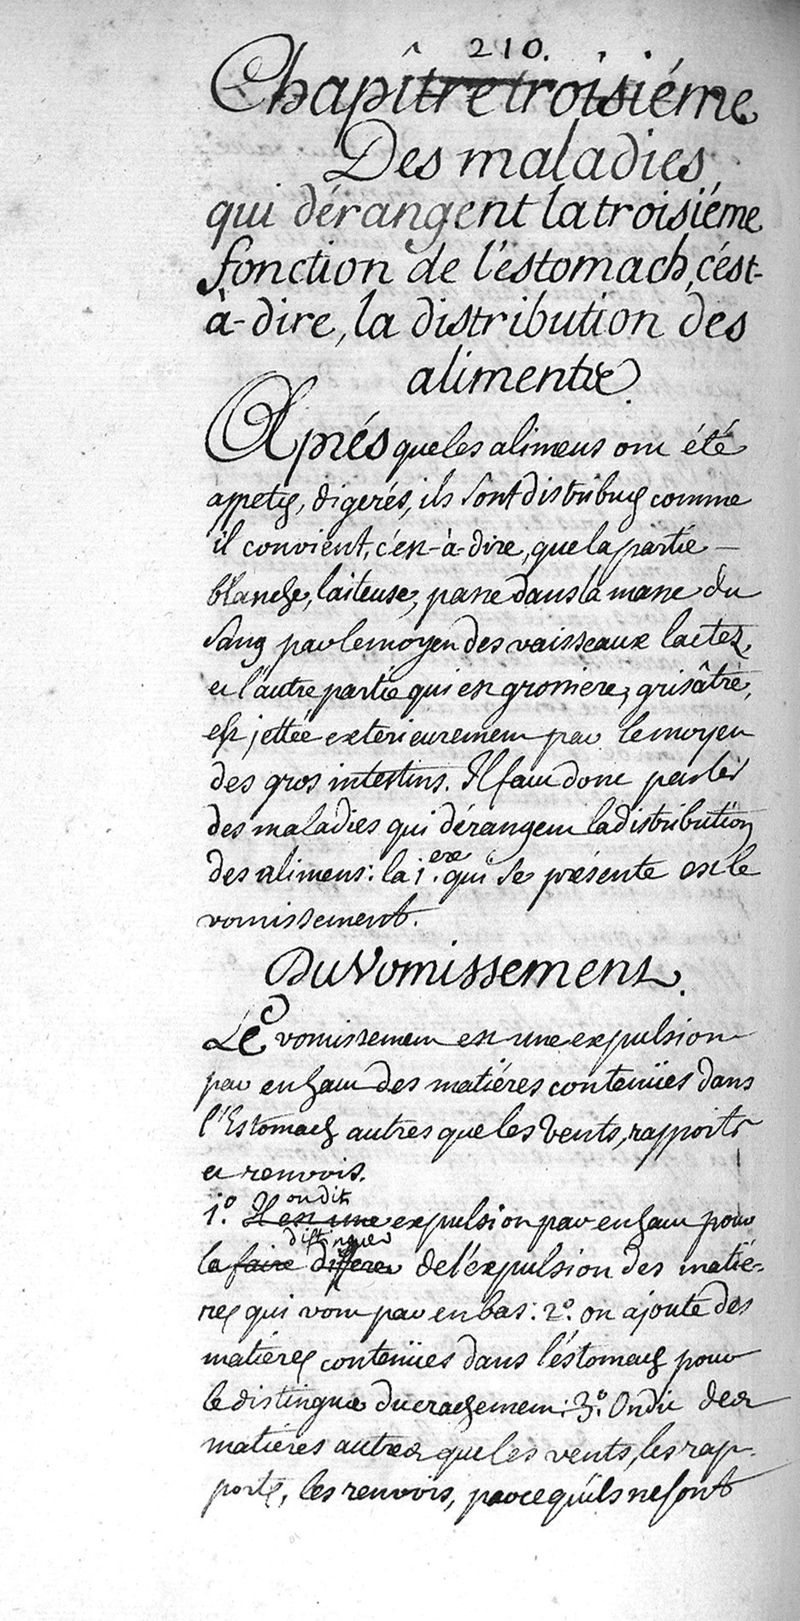 210.
Chapître troisiéme
Des maladies
qui dérangent la troisiéme
fonction de l'éstomach, c'ést-
à-dire, la distribution des
alimentz.
Aprés que les alimens ont été
appetés, digerés, ils sont distribués comme
il convient, c'est-à-dire, que la partie
blanche, laiteuse, passe dans la masse du
sang par le moyen des vaisseaux lactez,
et l'autre partie qui est grossiere, grisâtre,
est jettée exterieurement par le moyen
des gros intestins. Il faut donc parler
des maladies qui dérangent la distribution
des alimens: la 1.ere qui se présente est le
vomissement.
Du Vomissement.
Le vomissement est une expulsion
par en haut des matiéres contenües dans
l'Estomach autres que les vents, rapports
et renvois.
on dit
1.° Il est une expulsion par en haut pour
distinguer
la faire differer de l'expulsion des matie-
res qui vont par en bas: 2.° on ajoute des
matiéres contenües dans l'éstomach pour
le distinguer du crachement: 3.° On dit des
matiéres autres que les vents, les rap-
ports, les renvois, parce qu'ils ne sont